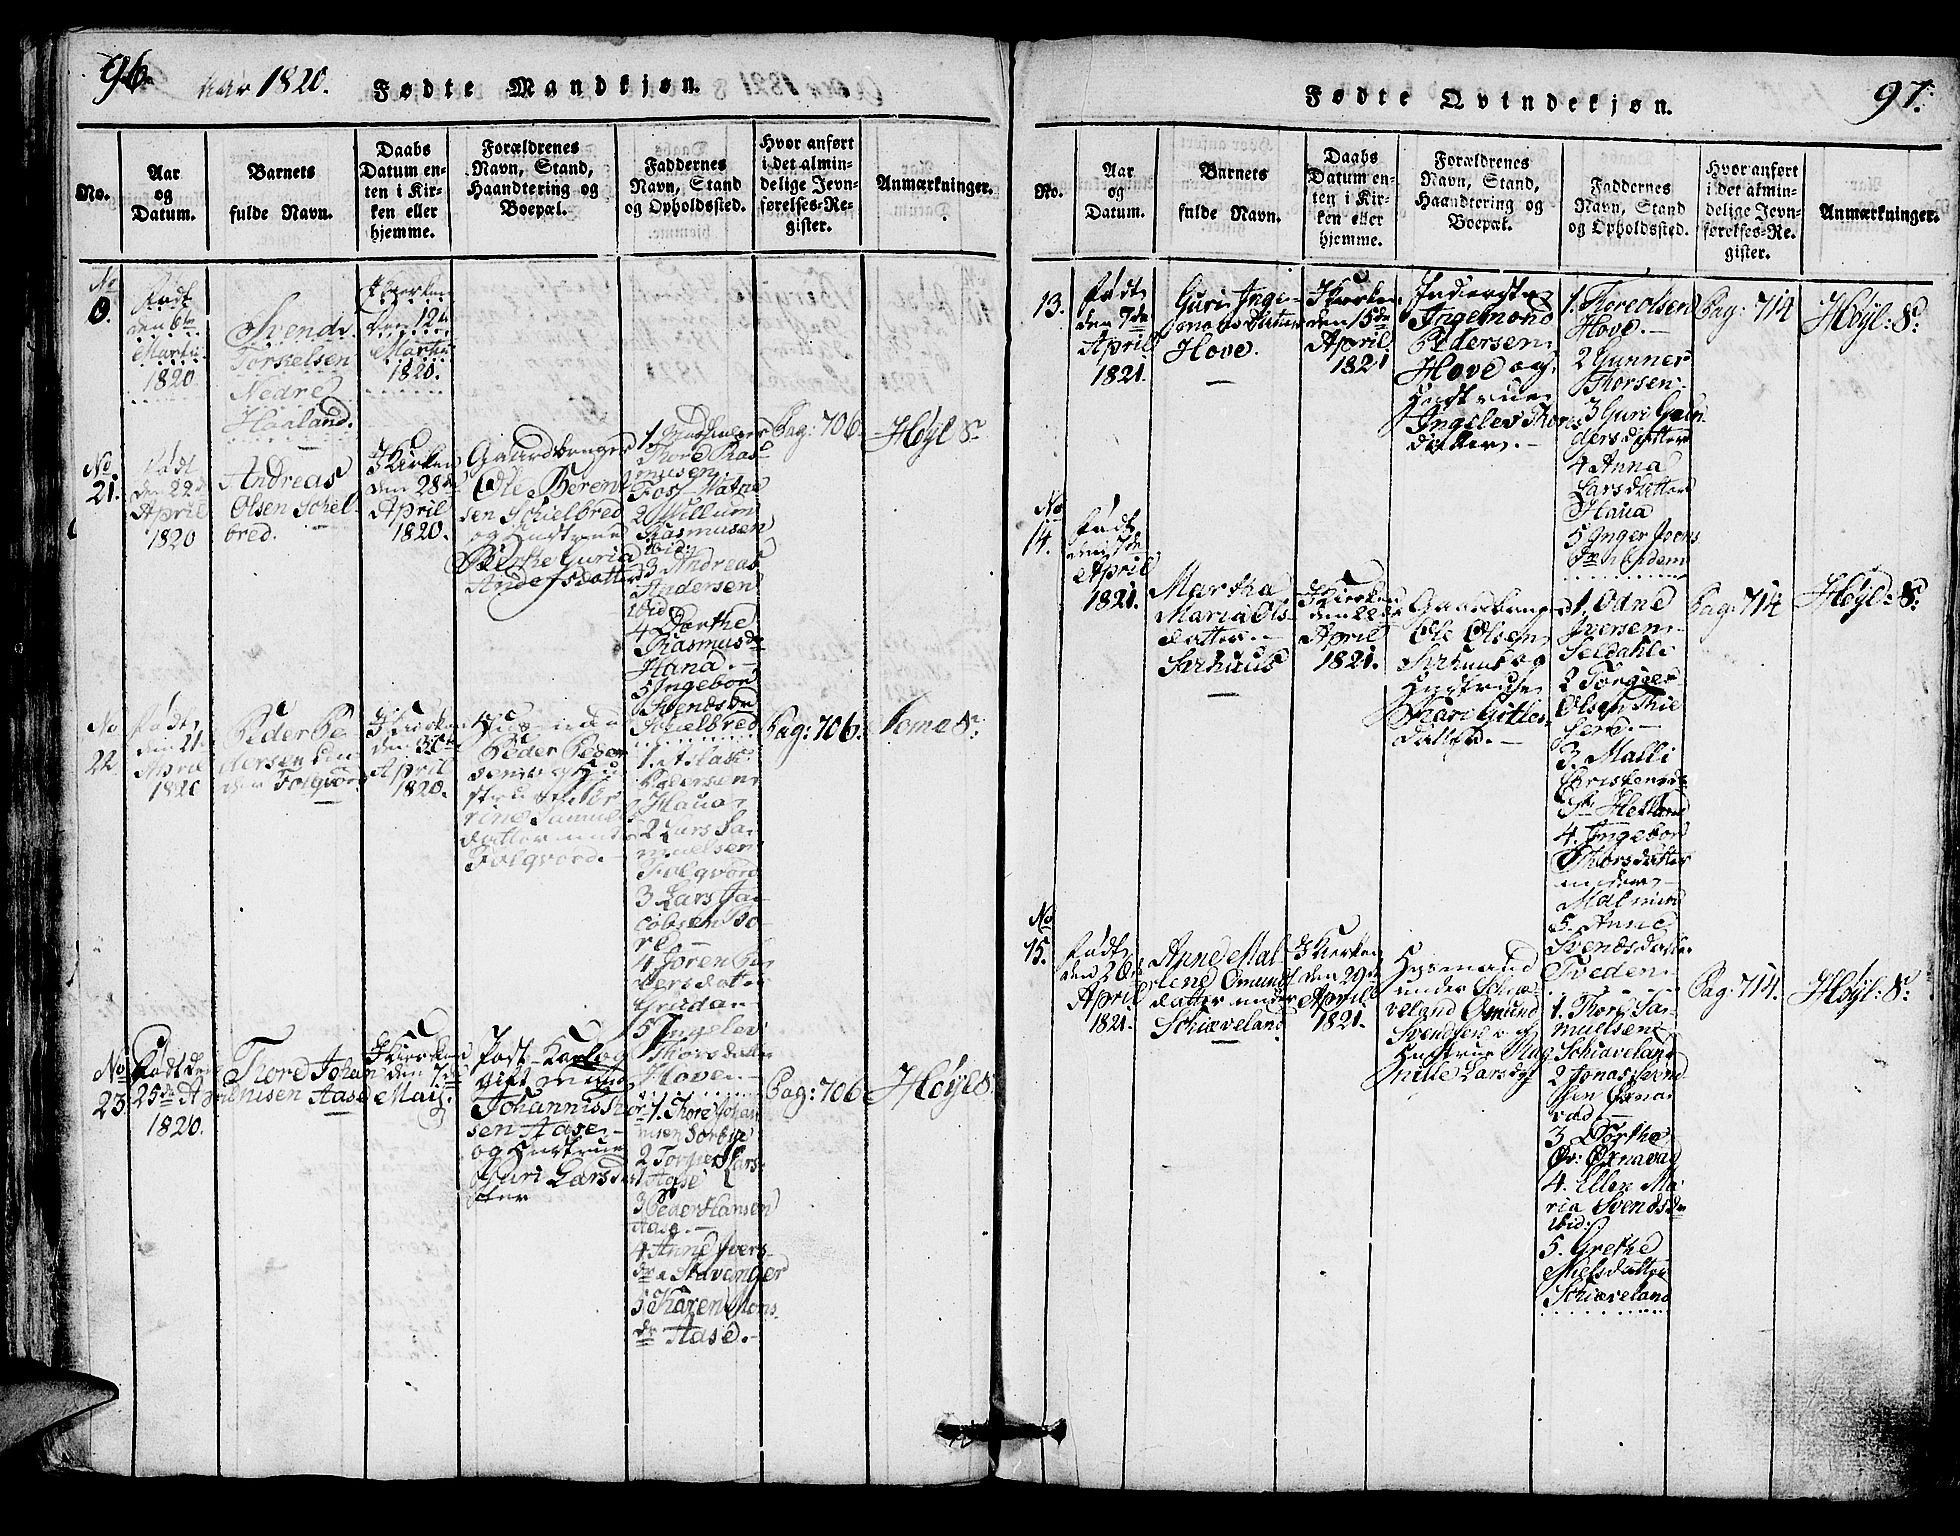 96
Aar 1820.
Fødte Mandkjøn.
No.
Aar
og
Datum.
Barnets
fulde Navn.
Daabs
Datum en-
ten i Kir-
ken eller
hjemme.
Forældrenes
Navn, Stand,
Haandtering og
Boepæl.
Faddernes
Navn, Stand
og Opholdssted.
Hvor anført
i det almin-
delige Jevn-
førelses-Re-
gister.
Anmærkninger.
No
0.
Født
den 6te
Martii
1820
Svend
Torkelsen
Nedre
Haaland.
I Kirken
den 12te
Martii
1820.
No
21.
Født
den 22de
April
1820
Andreas
Olsen Schiel-
bred.
I Kirken
den 28de
April
1820.
Gaardbruger
Ole Berent
sen Schielbred
og Hustrue
Berthe Guria
Andersdatter
1.
Thore Ras
musen
Foss Vatne
2 Willum
Rasmusen
ibid:
3 Andreas
Andersen
ibid
4 Dorthe
Rasmusdr
Hana.
5 Ingebor
Svendsdr
Schielbred
Pag: 706.
Høyl S:
No
22
Født
den 21
April
1820
Peder Pe
dersen
Folqvord
I Kirken
den 30te
April
1820.
Peder Peder
sen og Hu
strue
rine Samuels
datter
Folqvord.
1.
Pedersen
Haua
2 Lars Sa
muelsen
Folqvord
3 Lars Ja
cobsen So
re
4 Joren
versdatter
Gruda
5 Ingelev
Thorsdatter
Hove.
Pag: 706.
Soma S:
No
23
Født den
25de April
1820.
Thore Johan
nisen Aase
I Kirken
den 7de
Maij.
Post Karl og
gift mand
Johannis Thor
sen Aase
og Hustrue
Guri Larsdat
ter
1. Thore Johan
nisen Sorbøe
2 Torger Lars
Aase
3 Peder Hansen
Aase.
4 Anne Ivers
dr a Stavenger
5 Karen Mons
dr Aase.
Pag: 706
Høyl S:
97.
Fødte Qvindekjøn.
No.
Aar
og
Datum.
Barnets
fulde Navn.
Daabs
Datum en-
ten i Kir-
ken eller
hjemme.
Forældrenes
Navn, Stand,
Haandtering og
Boepæl.
Faddernes
Navn, Stand
og Opholdssted.
Hvor anført
i det almin-
delige Jevn-
førelses-Re-
gister.
Anmærkninger.
13.
Født
den 7de
April
1821.
Guri Inge-
monds Datter
Hove.
I Kirken
den 15de
April
1821
Inderste
Ingemond
Pedersen
Hove og
Hustrue
Ingelev Thors
datter.
1. Thore Olsen
Hove.
2 Gunner
Thorsen
3 Guri Gun
dersdatter
4 Anna
Larsdatter
Haua
5 Inger Joons
Pag: 714
Høyl: S:
No
14.
Født
den 7de
April
1821.
Martha
Maria Ols
datter
Sirhuus
I Kirken
den 22de
April
1821.
Gaardbruger
Ole Olsen
Sirhuus og
Hustrue
Kari Gitles
datter.
1. Odne
Iversen
Seldahl
2 Torger
Olsen
3. Malli
Christensdr
Helland
4. Ingebor
Thorsdatter
Malmin
5. Anne
Svendsdatter
Tveden.
Pag: 714
Høyl: S:
No
15.
Født
den 26de
April
1821.
Anne Mal
lene Omund
datter under
Schiaveland
I Kirken
den 29de
April
1821.
Husmand
under Schia
veland Omund
Svendsen og
Hustrue Rag
nilde Larsdtr
1. Thore Sa-
muelsen
Schiaveland
2 Jonas Svend
sen Oxna
vad.
3 Dorthe
Oxnavad
4. Ellen Ma
ria Svendsdr
ibid:
5. Grethe
Nielsdatter
Schiaveland
Pag: 714.
Høyl: S: